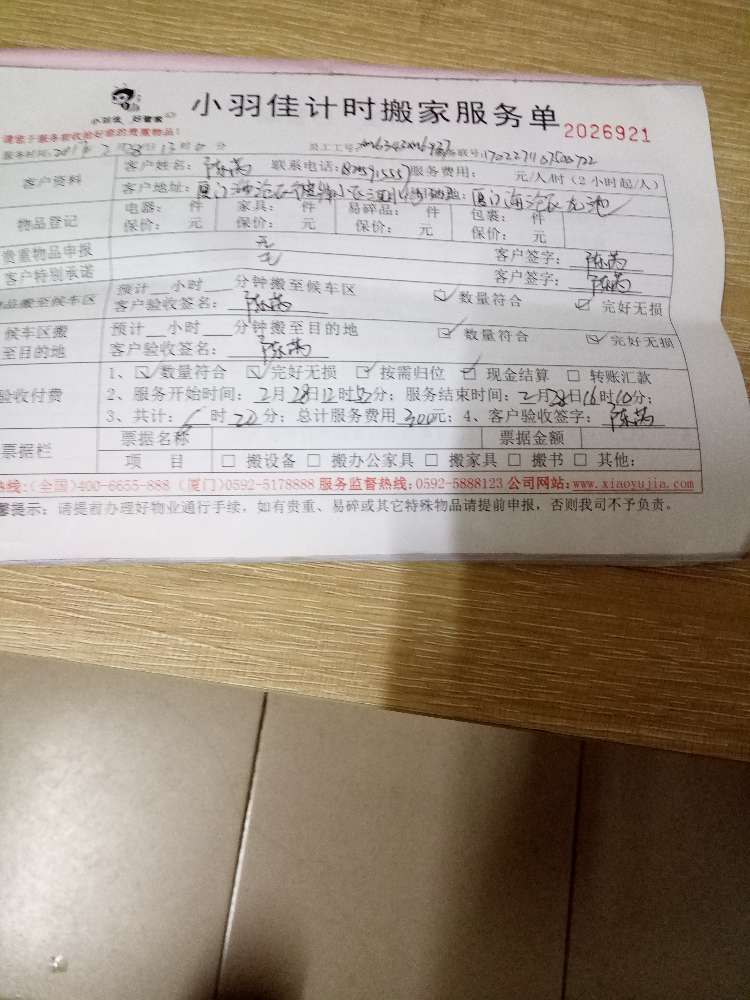 小羽佳 好管家
小羽佳计时搬家服务单 2026921
请您于服务前收拾好您的贵重物品!
服务时间: 2月28日13时 分 员工工号: 联号:
客户资料 客户姓名: 陈芮 联系电话: 服务费用: 元/人/时 (2小时起/人)
客户地址: 厦门海沧区 厦门海沧区
物品登记 电器: 件 家具: 件 易碎品: 件 包裹: 件
保价: 元 保价: 元 保价: 元 保价: 元
贵重物品申报 无 客户签字: 陈芮
客户特别承诺 无 客户签字: 陈芮
品搬至候车区 预计 小时 分钟搬至候车区 数量符合 完好无损
客户验收签名: 陈芮
候车区搬至目的地 预计 小时 分钟搬至目的地 数量符合 完好无损
客户验收签名: 陈芮
验收付费 1、 数量符合 完好无损 按需归位 现金结算 转账汇款
2、服务开始时间: 2月28日12时 分; 服务结束时间: 2月28日16时10分;
3、共计: 时20分; 总计服务费用300元; 4、客户验收签字: 陈芮
票据栏 票据名称 票据金额
项 目 搬设备 搬办公家具 搬家具 搬书 其他:
热线:(全国)400-6655-888 (厦门)0592-5178888 服务监督热线:0592-5888123 公司网站:www.xiaoyujia.com
馨提示: 请提前办理好物业通行手续, 如有贵重、易碎或其它特殊物品请提前申报, 否则我司不予负责。